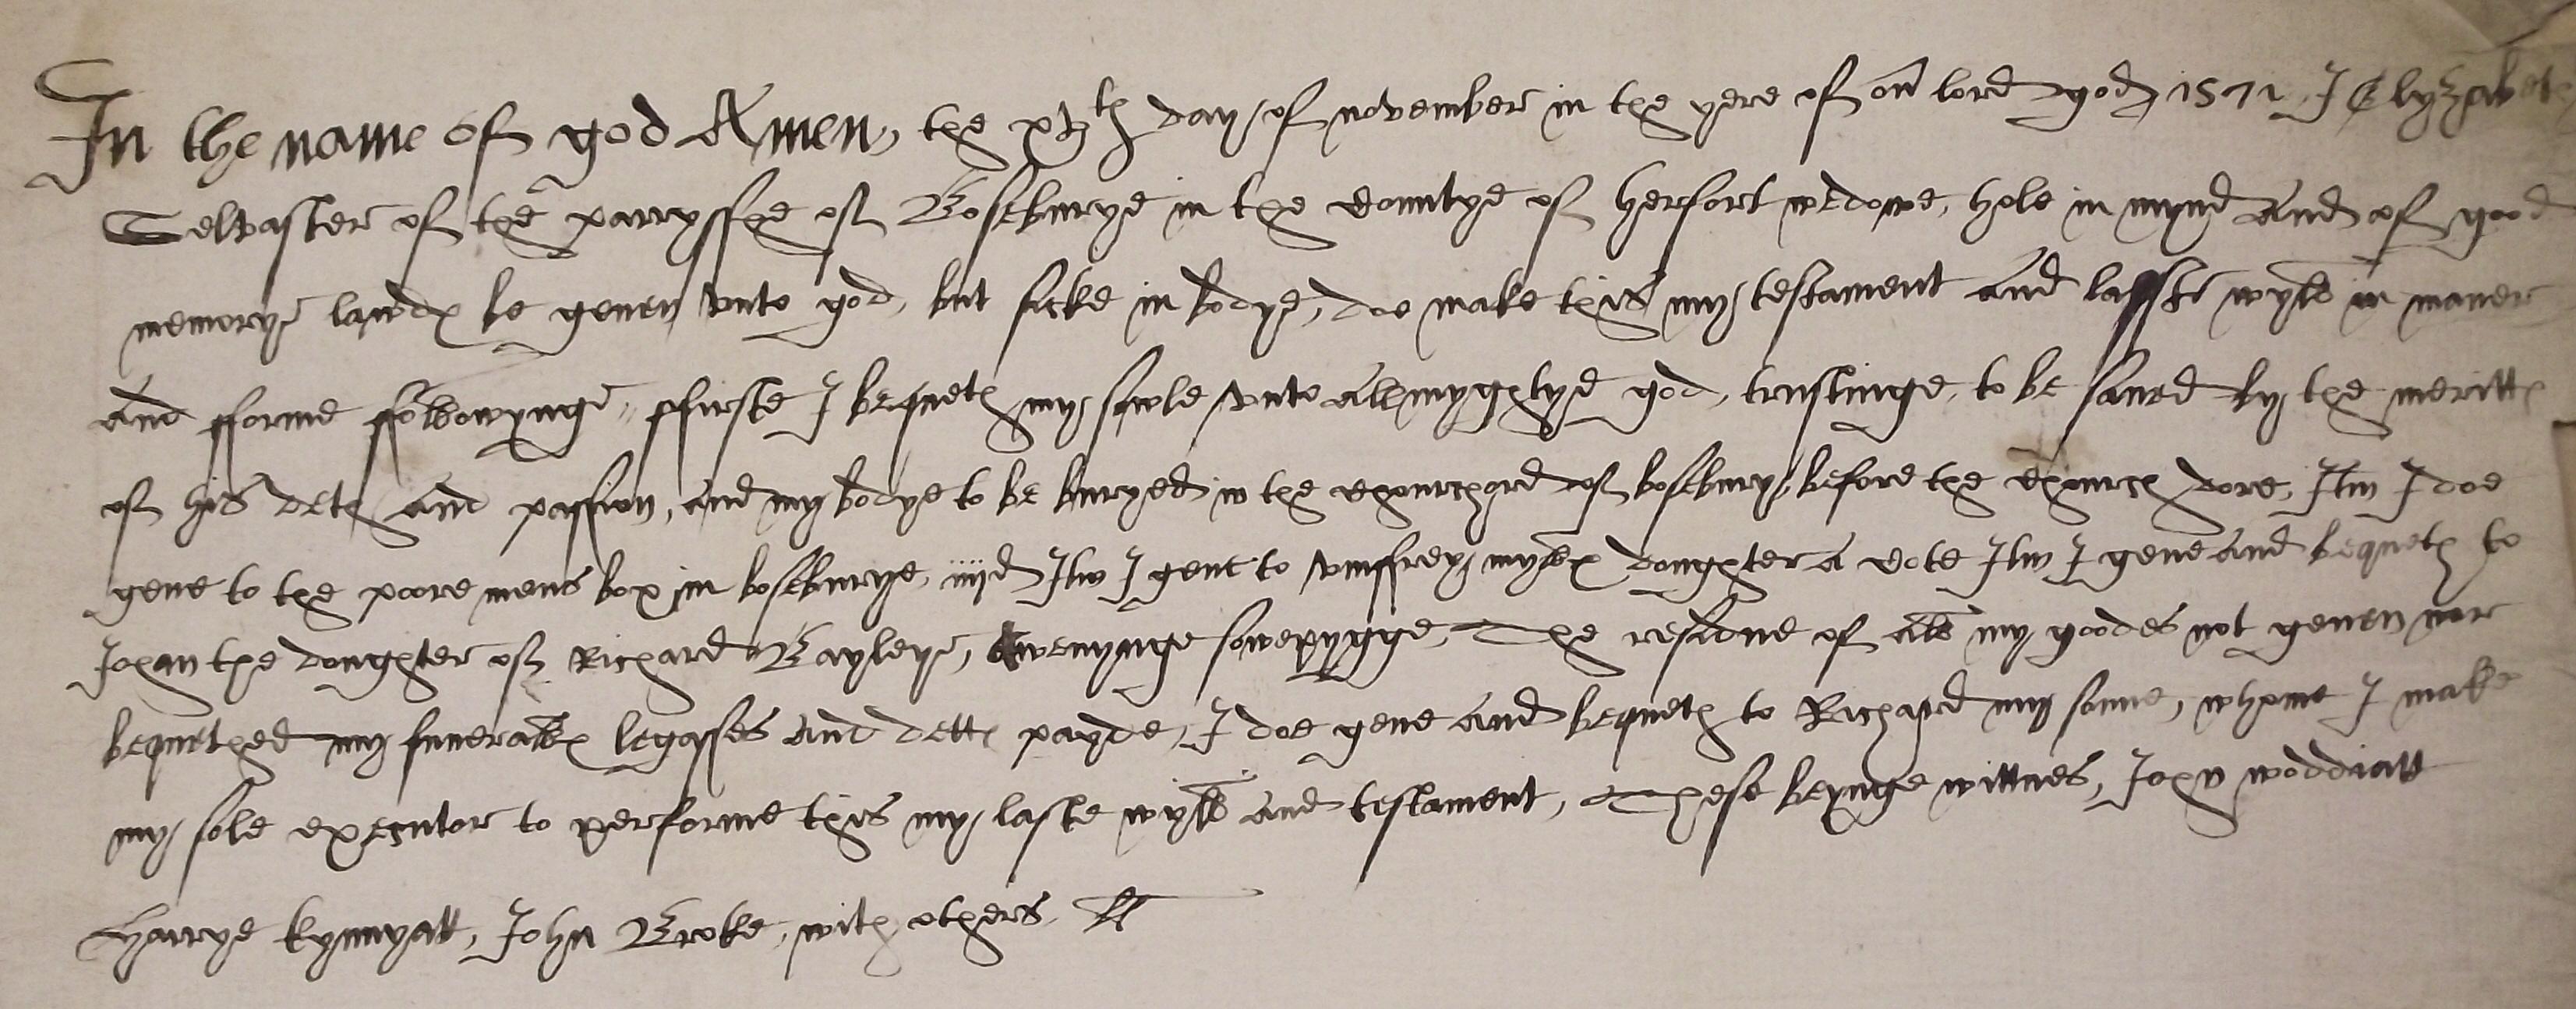 In the name of god Amen, the xvth day of november in the yere of our lord god 1571 I Elyzabeth
of the parrysshe of Bosburye in the countye of herfort wedowe, hole in mynd And of good
memorye lawde be geven vnto god, but sicke in bodye, doe make this my testament And laste wyll in maner
And fforme ffollowynge, ffirste I bequeth my sowle vnto Allmyghtye god, trustinge, to be saved by the meritts
of his deth And passion, And my bodye to be buryed in the chourchard of bosbury, before the chourch dore, Itm I doe
geve to the poore mens box in bosburye, iiijd Itm I geve to vmffrey daughter A cote Itm I geve And bequeth to
Johan the doughter of Richard Bayleye, A wenynge sowepygge, The residue of All my goodes not geven nor
bequethed my funeralls legasses And detts payde, I doe geve And bequeth to Richard my sonne, whome I make
my sole executor to performe this my laste wyll And testament, These beynge wittnes, John woddiatt
Harrye kynnyatt, John Broke, with others